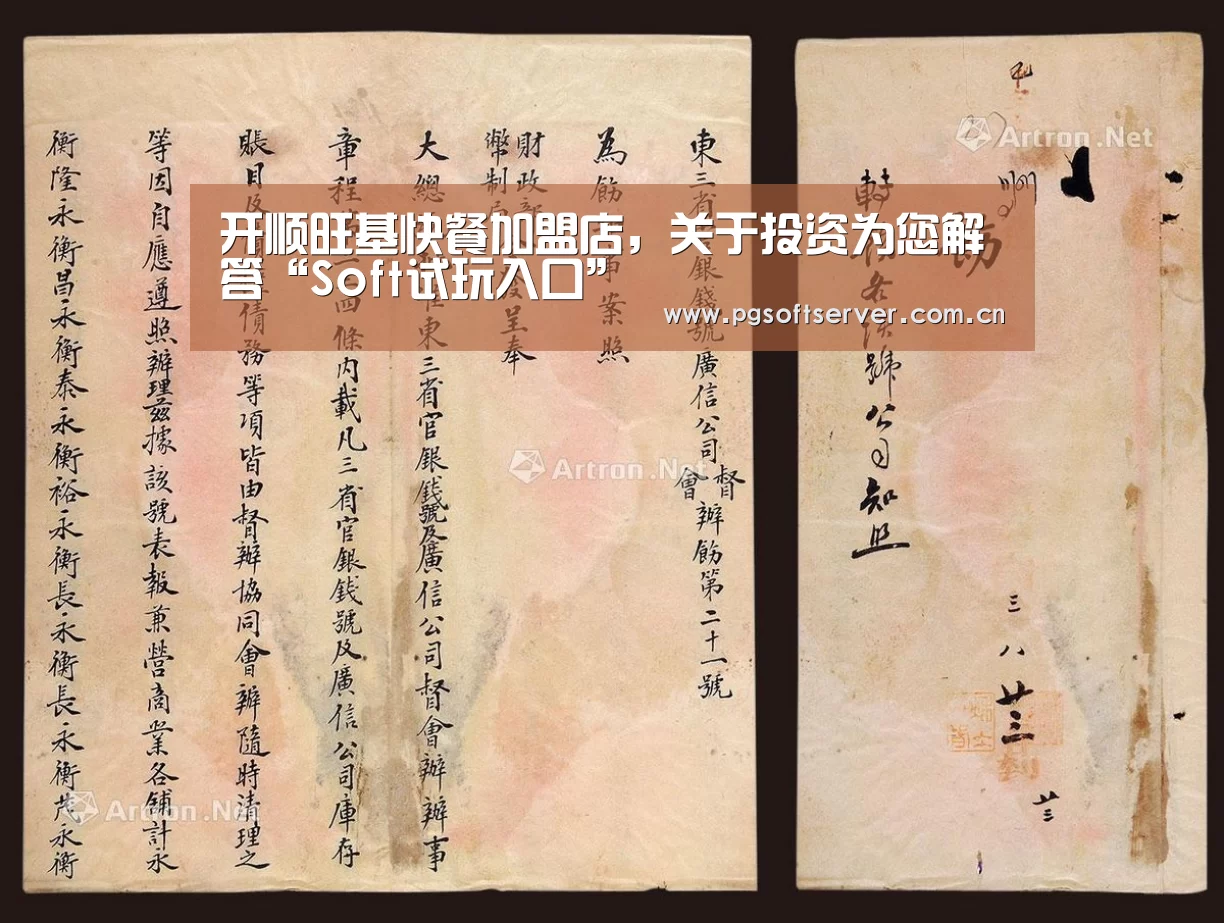 开顺旺基快餐加盟店，关于投资为您解
答“Soft试玩入口”
www.pgsoftserver.com.cn
東三省
銀錢號廣信公司督會辦飭第二十一號
為飭
事案照
財政部
幣制局
呈奉
大總
東三省官銀錢號及廣信公司督會辦辦事
章程
四條內載凡三省官銀錢號及廣信公司庫存
賬目及
債務等項皆由督辦協同會辦隨時清理之
等因自應遵照辦理茲據該號表報兼營商業各鋪計永
衡隆永衡昌永衡泰永衡裕永衡長永衡長永衡茂永衡
轉
號公司知照
三
八
廿三
到
廿三
Artron.Net
Artron.Net
Artron.Net